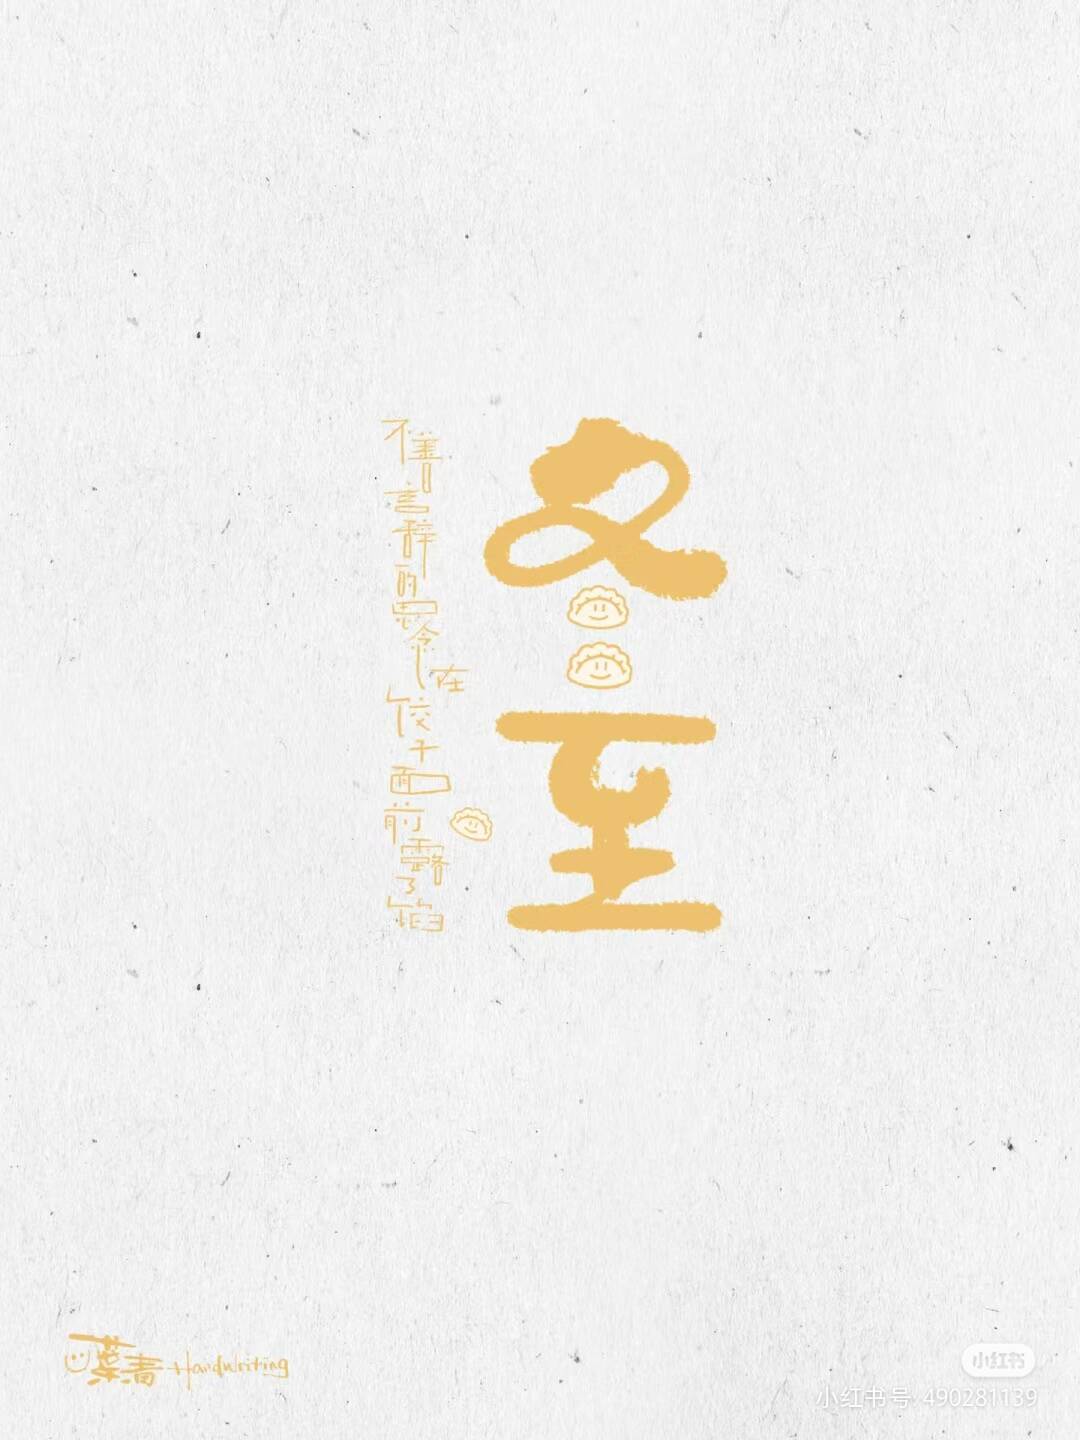 冬至
不善言辞的思念在饺子面前露了馅
葉青 Handwriting
小红书
小红书号: 490281139